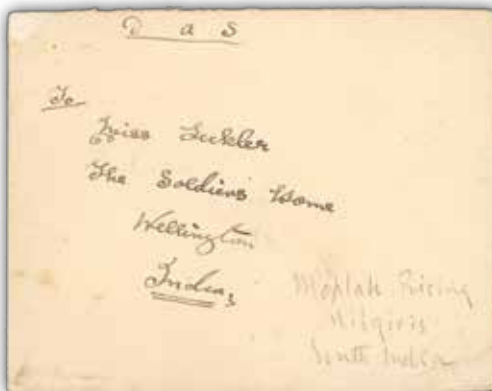 O a S
To
Miss Tickler
The Soldiers Home
Wellington
India,
Moplah Rising
Nilgiris
South India